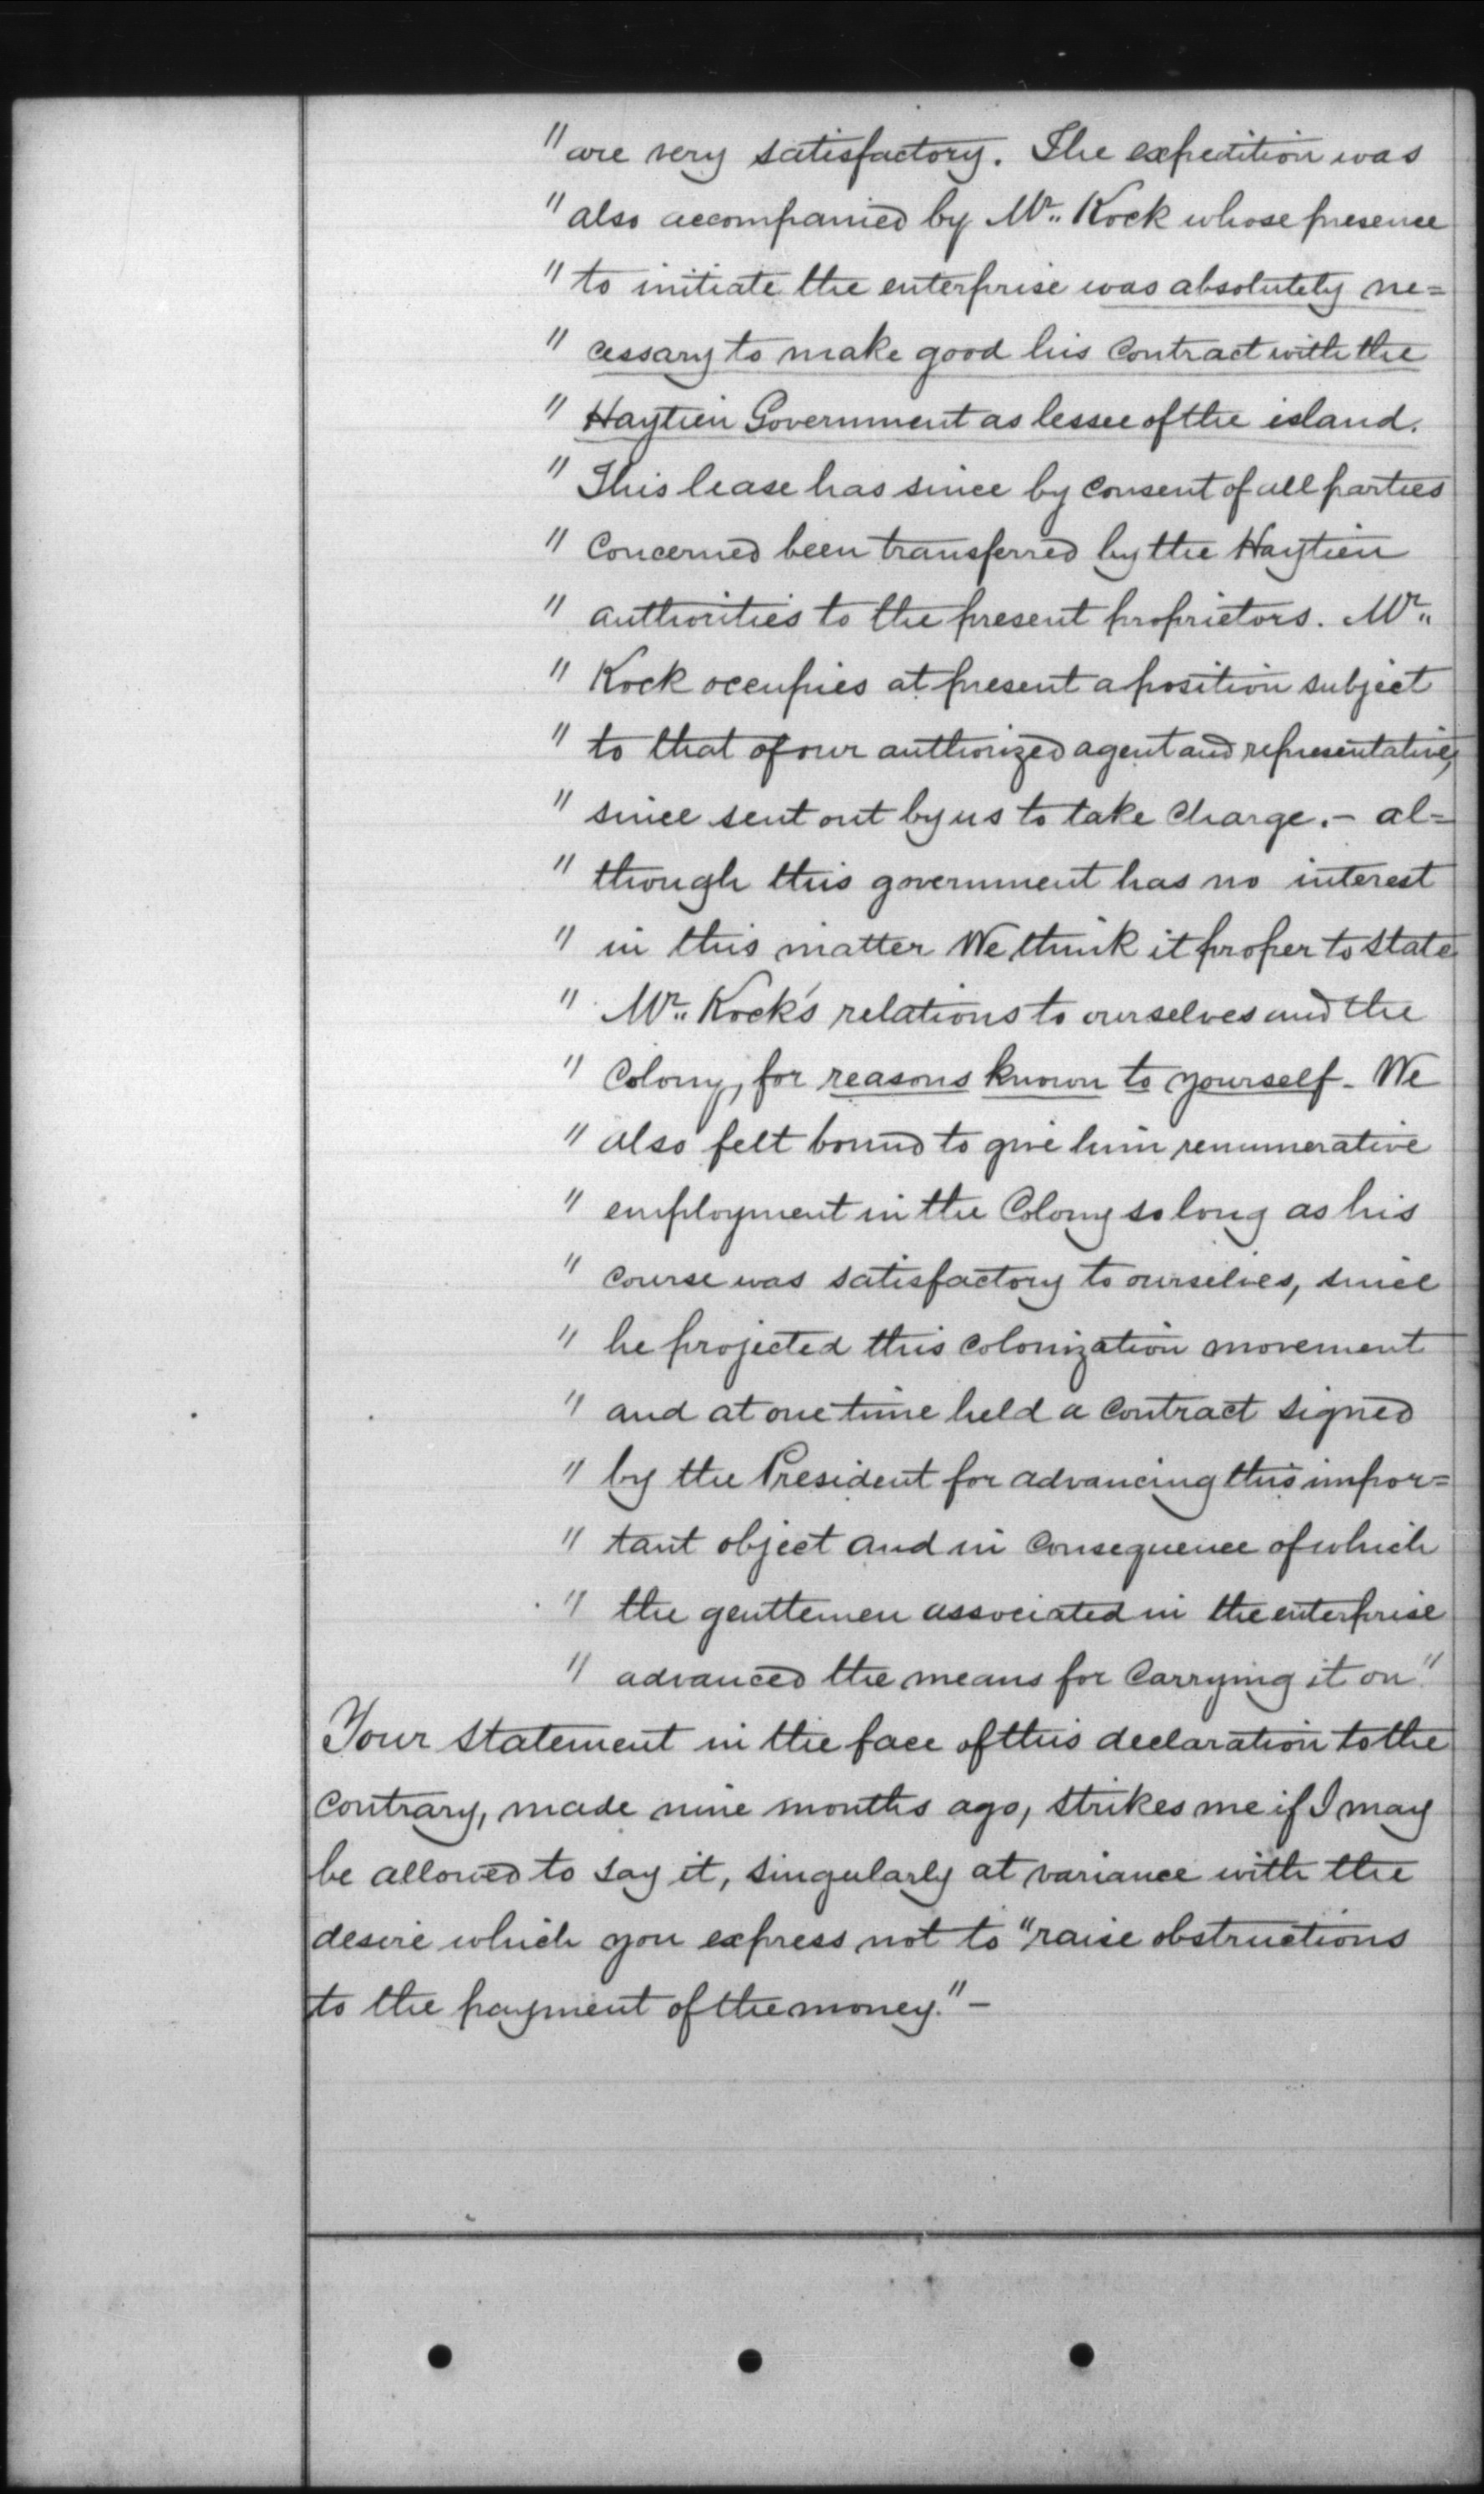 " are very satisfactory. The expedition was
" also accompanied by Mr.. Kock whose presence
" to initiate the enterprise was absolutely ne=
" cessary to make good his contract with the
" Haytien Government as lessee of the island.
" This lease has since by consent of all parties
" concerned been transferred by the Haytien
" authorities to the present proprietors. Mr..
" Kock occupies at present a position subject
" to that of our authorized agent and representative,
" since sent out by us to take charge.- al=
" though this government has no interest
" in this matter We think it proper to state
" Mr.. Kock's relations to ourselves and the
" Colony, for reasons known to yourself - We
" also felt bound to give him renumerative
" employment in the Colony so long as his
" course was satisfactory to ourselves, since
" he projected this colonization movement
" and at one time held a contract signed
" by the President for advancing this impor=
" tant object and in consequence of which
" the gentlemen associated in the enterprise
" advanced the means for carrying it on."
Your statement in the face of this declaration to the
contrary, made nine months ago, strikes me if I may
be allowed to say it, singularly at variance with the
desire which you express not to "raise obstructions
to the payment of the money." -